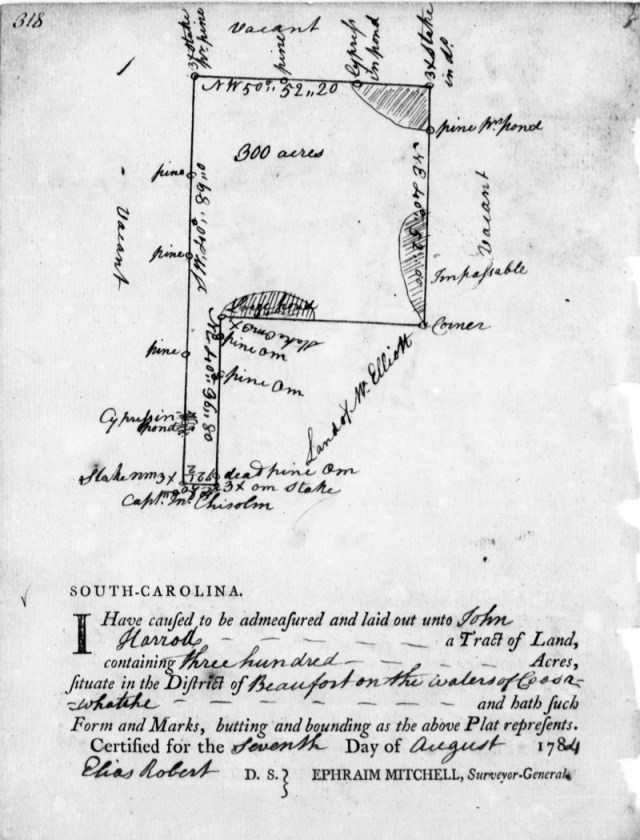 318
Vacant
3x Stake
nr. pine
pine
Cypress
in pond
3x Stake
in do.
NW 50°,, 52,,20
pine nr. pond
300 acres
pine
Vacant
Vacant
pine
Impassable
Corner
pine om
pine
pine om
Land of Wm. Elliott
Cypress in
pond
Stake nm 3x
dead pine om
3x om Stake
Capt. Jno. Chisolm
SOUTH-CAROLINA.
I Have caused to be admeasured and laid out unto John
Harrod a Tract of Land,
containing three hundred Acres,
situate in the District of Beaufort on the waters of Coosa-
-whatchie and hath such
Form and Marks, butting and bounding as the above Plat represents.
Certified for the Seventh Day of August 1784
Elias Robert D. S. } EPHRAIM MITCHELL, Surveyor-General.